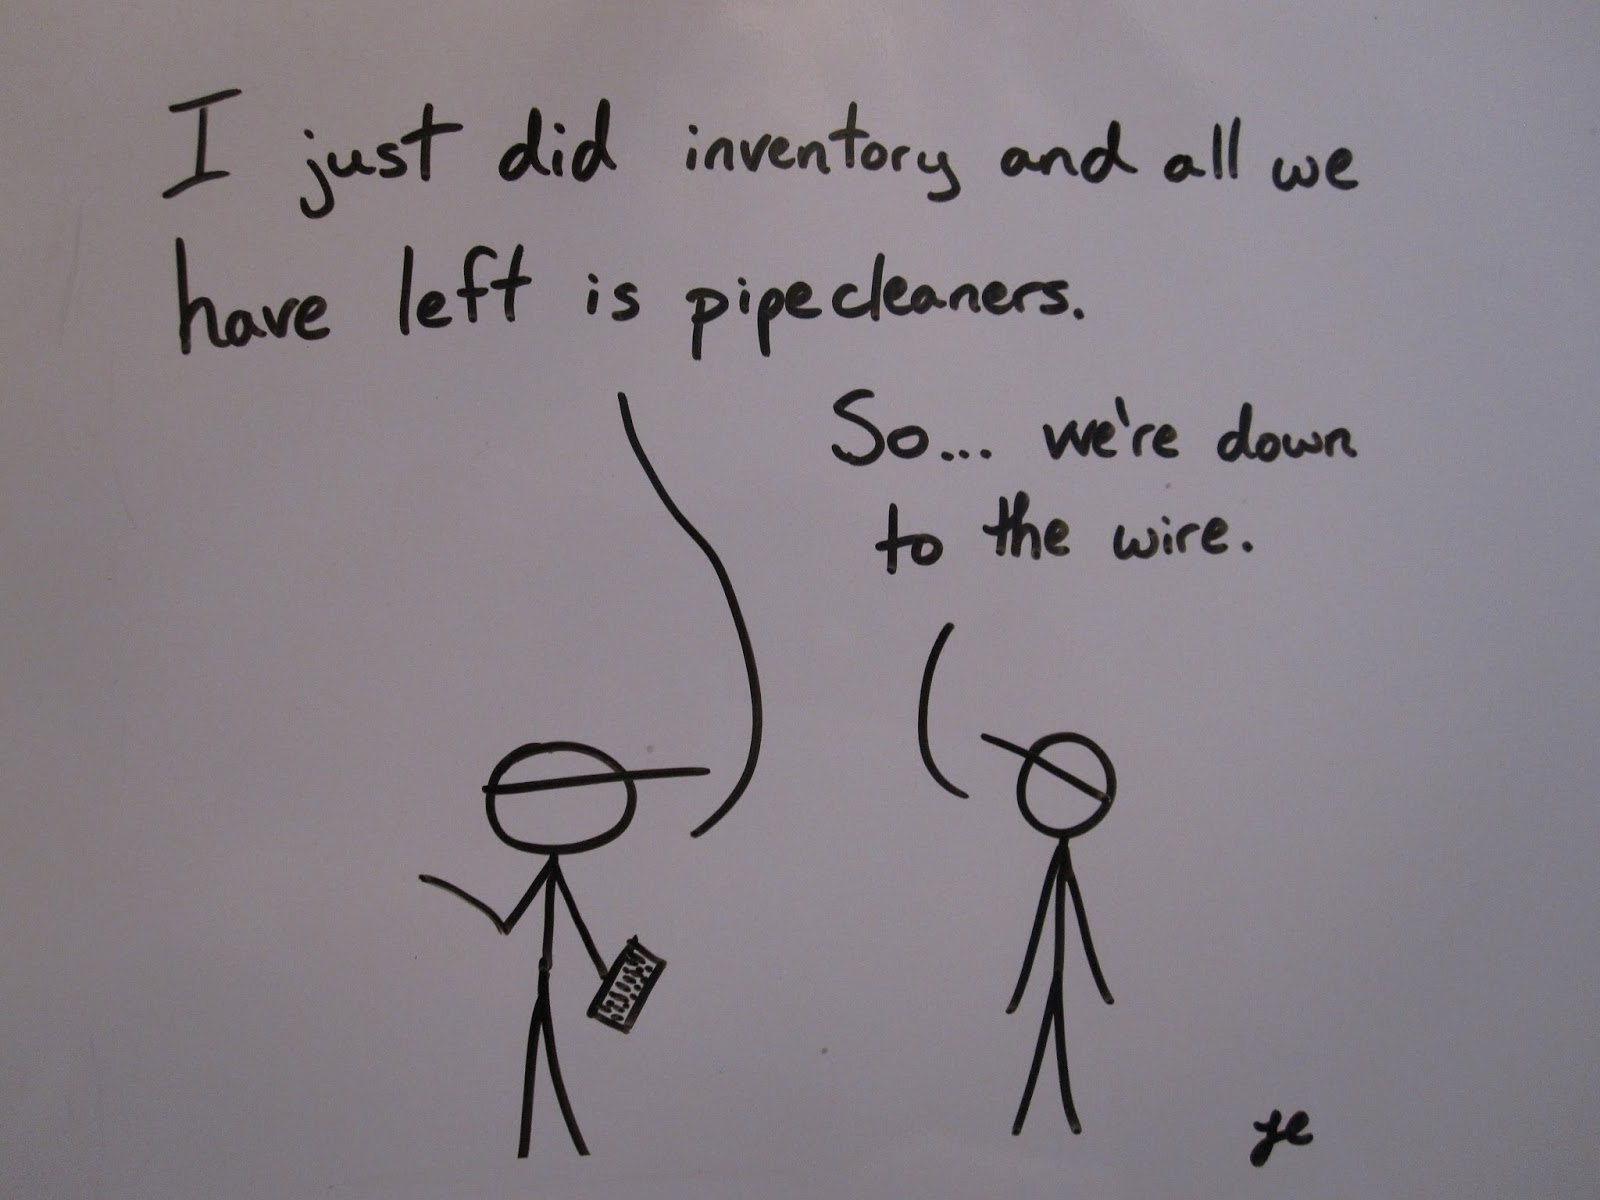 I just did inventory and all we
have left is pipecleaners.
So... we're down
to the wire.